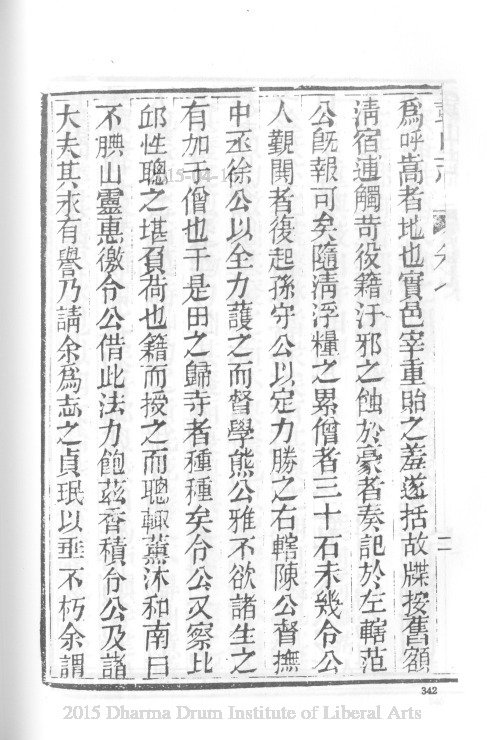 爲呼嵩者地也實邑宰重貽之羞遂括故牒按舊額
清宿逋觸苛役籍汙邪之蝕於豪者奏記於左轄范
公旣報可矣隨清浮糧之累僧者三十石未幾令公
人覲鬨者復起孫守公以定力勝之右轄陳公督撫
中丞徐公以全力護之而督學熊公雅不欲諸生之
有加于僧也于是田之歸寺者種種矣令公又察比
邱性聰之堪負荷也籍而授之而聰輙薰沐和南曰
不腆山靈惠徼令公借此法力飽茲香積令公及諸
大夫其永有譽乃請余爲志之貞珉以垂不朽余謂
二
342
2015-04-1
2015 Dharma Drum Institute of Liberal Arts